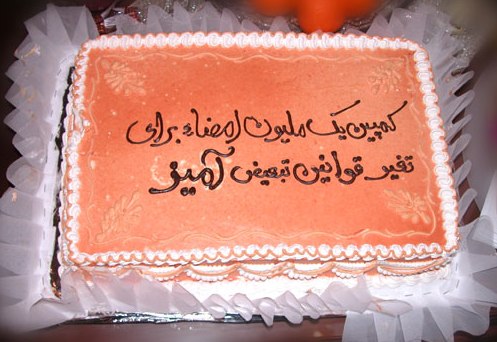 کمپین یک ملیون امضاء برای
تغیر قوانین تبعیض آمیز